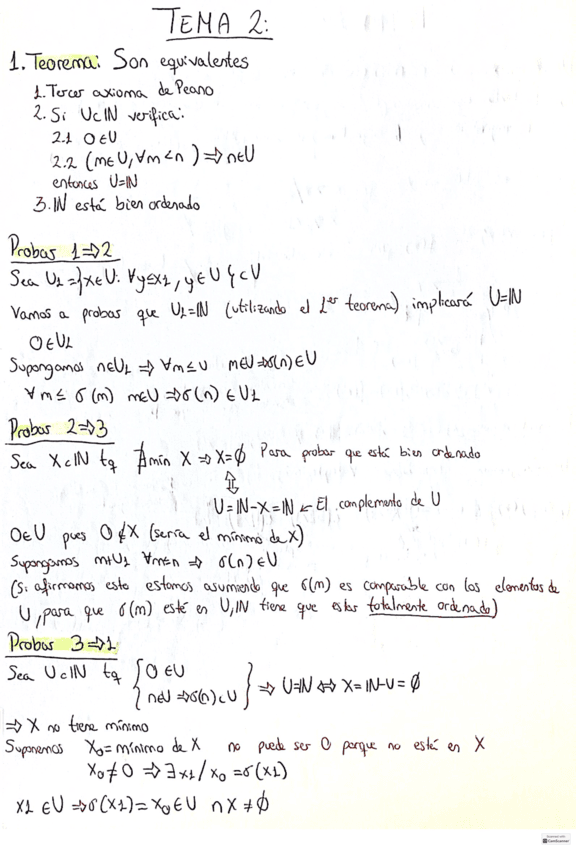 TEMA 2:
1. Teorema: Son equivalentes
1. Tercer axioma de Peano
2. Si U⊂ℕ verifica:
2.1 0∈U
2.2 (m∈U, ∀m<n) ⇒ n∈U
entonces U=ℕ
3. ℕ está bien ordenado
Probar 1⇒2
Sea U1={x∈U: ∀y≤x1, y∈U}⊂U
Vamos a probar que U1=ℕ (utilizando el 1er teorema), implicará U=ℕ
0∈U1
Supongamos n∈U1 ⇒ ∀m≤u m∈U⇒σ(n)∈U
∀m≤ σ(m) m∈U ⇒σ(n) ∈U1
Probar 2⇒3
Sea X⊂ℕ tq ∄min X ⇒ X=∅ Para probar que está bien ordenado
⇕
U=ℕ-X=ℕ ← El complemento de U
0∈U pues 0∉X (sería el mínimo de X)
Supongamos m∈U1 ∀m≤n ⇒ σ(n)∈U
(Si afirmamos esto estamos asumiendo que σ(m) es comparable con los elementos de
U, para que σ(m) esté en U, ℕ tiene que estar totalmente ordenado)
Probar 3⇒1
Sea U⊂ℕ tq {0∈U
n∈U ⇒σ(n)⊂U} ⇒ U=ℕ ⇔ X=ℕ-U = ∅
⇒ X no tiene mínimo
Suponemos X0= mínimo de X no puede ser 0 porque no está en X
X0≠0 ⇒ ∃x1/x0 =σ(x1)
x1 ∈U ⇒σ(x1)=x0∈U ∩X ≠∅
Scanned with
CamScanner